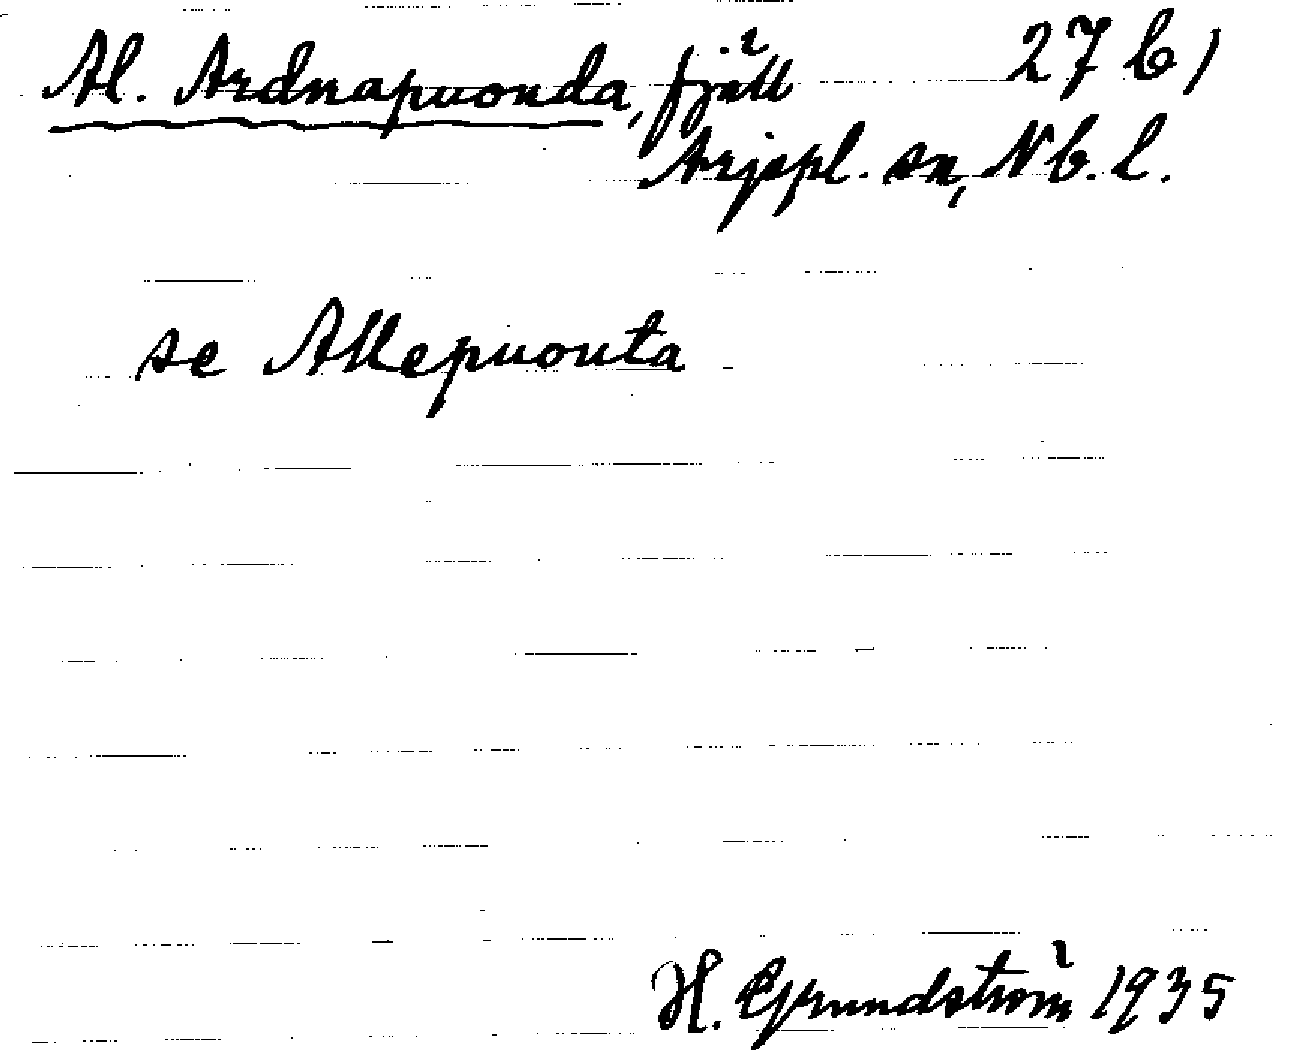 Al. Ardnapuonda, fjäll 27 b)
Arjepl. sn, Nb. l.
se Allepuonta
H. Grundström 1935